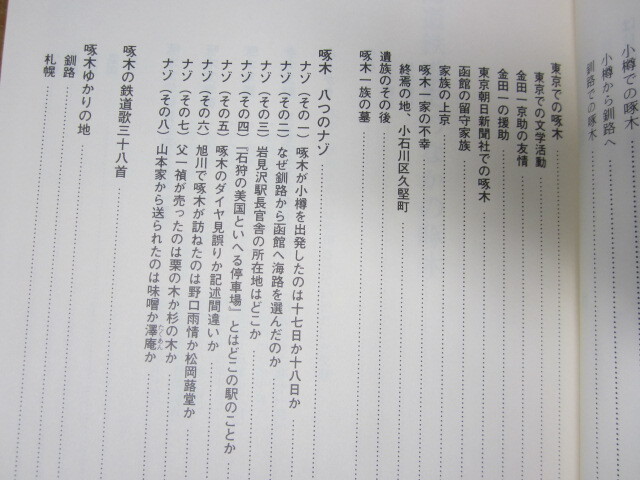 小樽での啄木
小樽から釧路へ
釧路での啄木
東京での啄木
東京での文学活動
金田一京助の友情
金田一の援助
東京朝日新聞社での啄木
函館の留守家族
家族の上京
啄木一家の不幸
終焉の地、小石川区久堅町
遺族のその後
啄木一族の墓
啄木 八つのナゾ
ナゾ(その一) 啄木が小樽を出発したのは十七日か十八日か
ナゾ(その二) なぜ釧路から函館へ海路を選んだのか
ナゾ(その三) 岩見沢駅長官舎の所在地はどこか
ナゾ(その四) 『石狩の美国といへる停車場』とはどこの駅のことか
ナゾ(その五) 啄木のダイヤ見誤りか記述間違いか
ナゾ(その六) 旭川で啄木が訪ねたのは野口雨情か松岡蕗堂か
ナゾ(その七) 父一禎が売ったのは栗の木か杉の木か
ナゾ(その八) 山本家から送られたのは味噌か澤庵か
たくあん
啄木の鉄道歌三十八首
啄木ゆかりの地
釧路
札幌